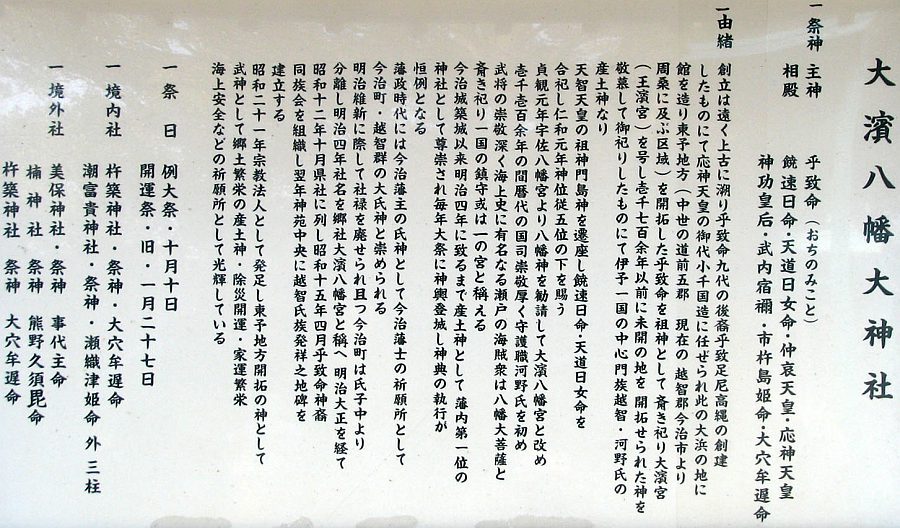 大濱八幡大神社
一祭神 主神 乎致命(おちのみこと)
相殿 饒速日命・天道日女命・仲哀天皇・応神天皇
神功皇后・武内宿禰・市杵島姫命・大穴牟遅命
一由緒 創立は遠く上古に溯り乎致命九代の後裔乎致足尼高縄の創建
したものにて応神天皇の御代小千国造に任ぜられ此の大浜の地に
館を造り東予地方(中世の道前五郡 現在の越智郡今治市より
周桑に及ぶ区域)を開拓した乎致命を祖神として斎き祀り大濱宮
(王濱宮)を号し壱千七百余年以前に未開の地を開拓せられた神を
敬慕して御祀りしたものにて伊予一国の中心門族越智・河野氏の
産土神なり
天智天皇の祖神門島神を遷座し饒速日命・天道日女命を
合祀し仁和元年神位従五位の下を賜う
貞観元年宇佐八幡宮より八幡神を勧請して大濱八幡宮と改め
壱千壱百余年の間暦代の国司崇敬厚く守護職河野氏を初め
武将の崇敬深く海上史に有名なる瀬戸の海賊衆は八幡大菩薩と
斎き祀り一国の鎮守或は一の宮と稱える
今治城築城以来明治四年に致るまで産土神として藩内第一位の
神社として尊崇され毎年大祭に神輿登城し神典の執行が
恒例となる
藩政時代には今治藩主の氏神として今治藩士の祈願所として
今治町・越智群の大氏神と崇められる
明治維新に際して社禄を廃せられ且つ今治町は氏子中より
分離し明治四年社名を郷社大濱八幡宮と稱へ明治大正を経て
昭和十二年十月県社に列し昭和十五年四月乎致命神裔
同族会を組織し翌年神苑中央に越智氏族発祥之地碑を
建立する
昭和二十一年宗教法人として発足し東予地方開拓の神として
武神として郷土繁栄の産土神・除災開運・家運繁栄
海上安全などの祈願所として光輝している
一祭 日 例大祭・十月十日
開運祭・旧・一月二十七日
一境内社 杵築神社・祭神・大穴牟遅命
潮富貴神社・祭神・瀬織津姫命 外 三柱
一境外社 美保神社・祭神 事代主命
楠 神 社・祭神 熊野久須毘命
杵築神社 祭神 大穴牟遅命